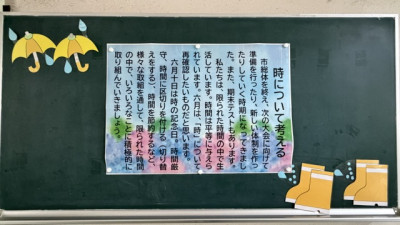 時について考える
市総体を終え、次の大会に向けて
準備を行ったり、新しい体制を作っ
たりしていく時期になってきまし
た。また、期末テストもあります。
私たちは、限られた時間の中で生
活しています。時間は平等に与えら
れています。六月は、「時」について
再確認したいものだと思います。
六月十日は時の記念日。時間厳
守、時間に区切りを付ける（切り替
えをする）、時間を節約するなど、
様々な取組を通して、限られた時間
の中で、いろいろなことに積極的に
取り組んでいきましょう。